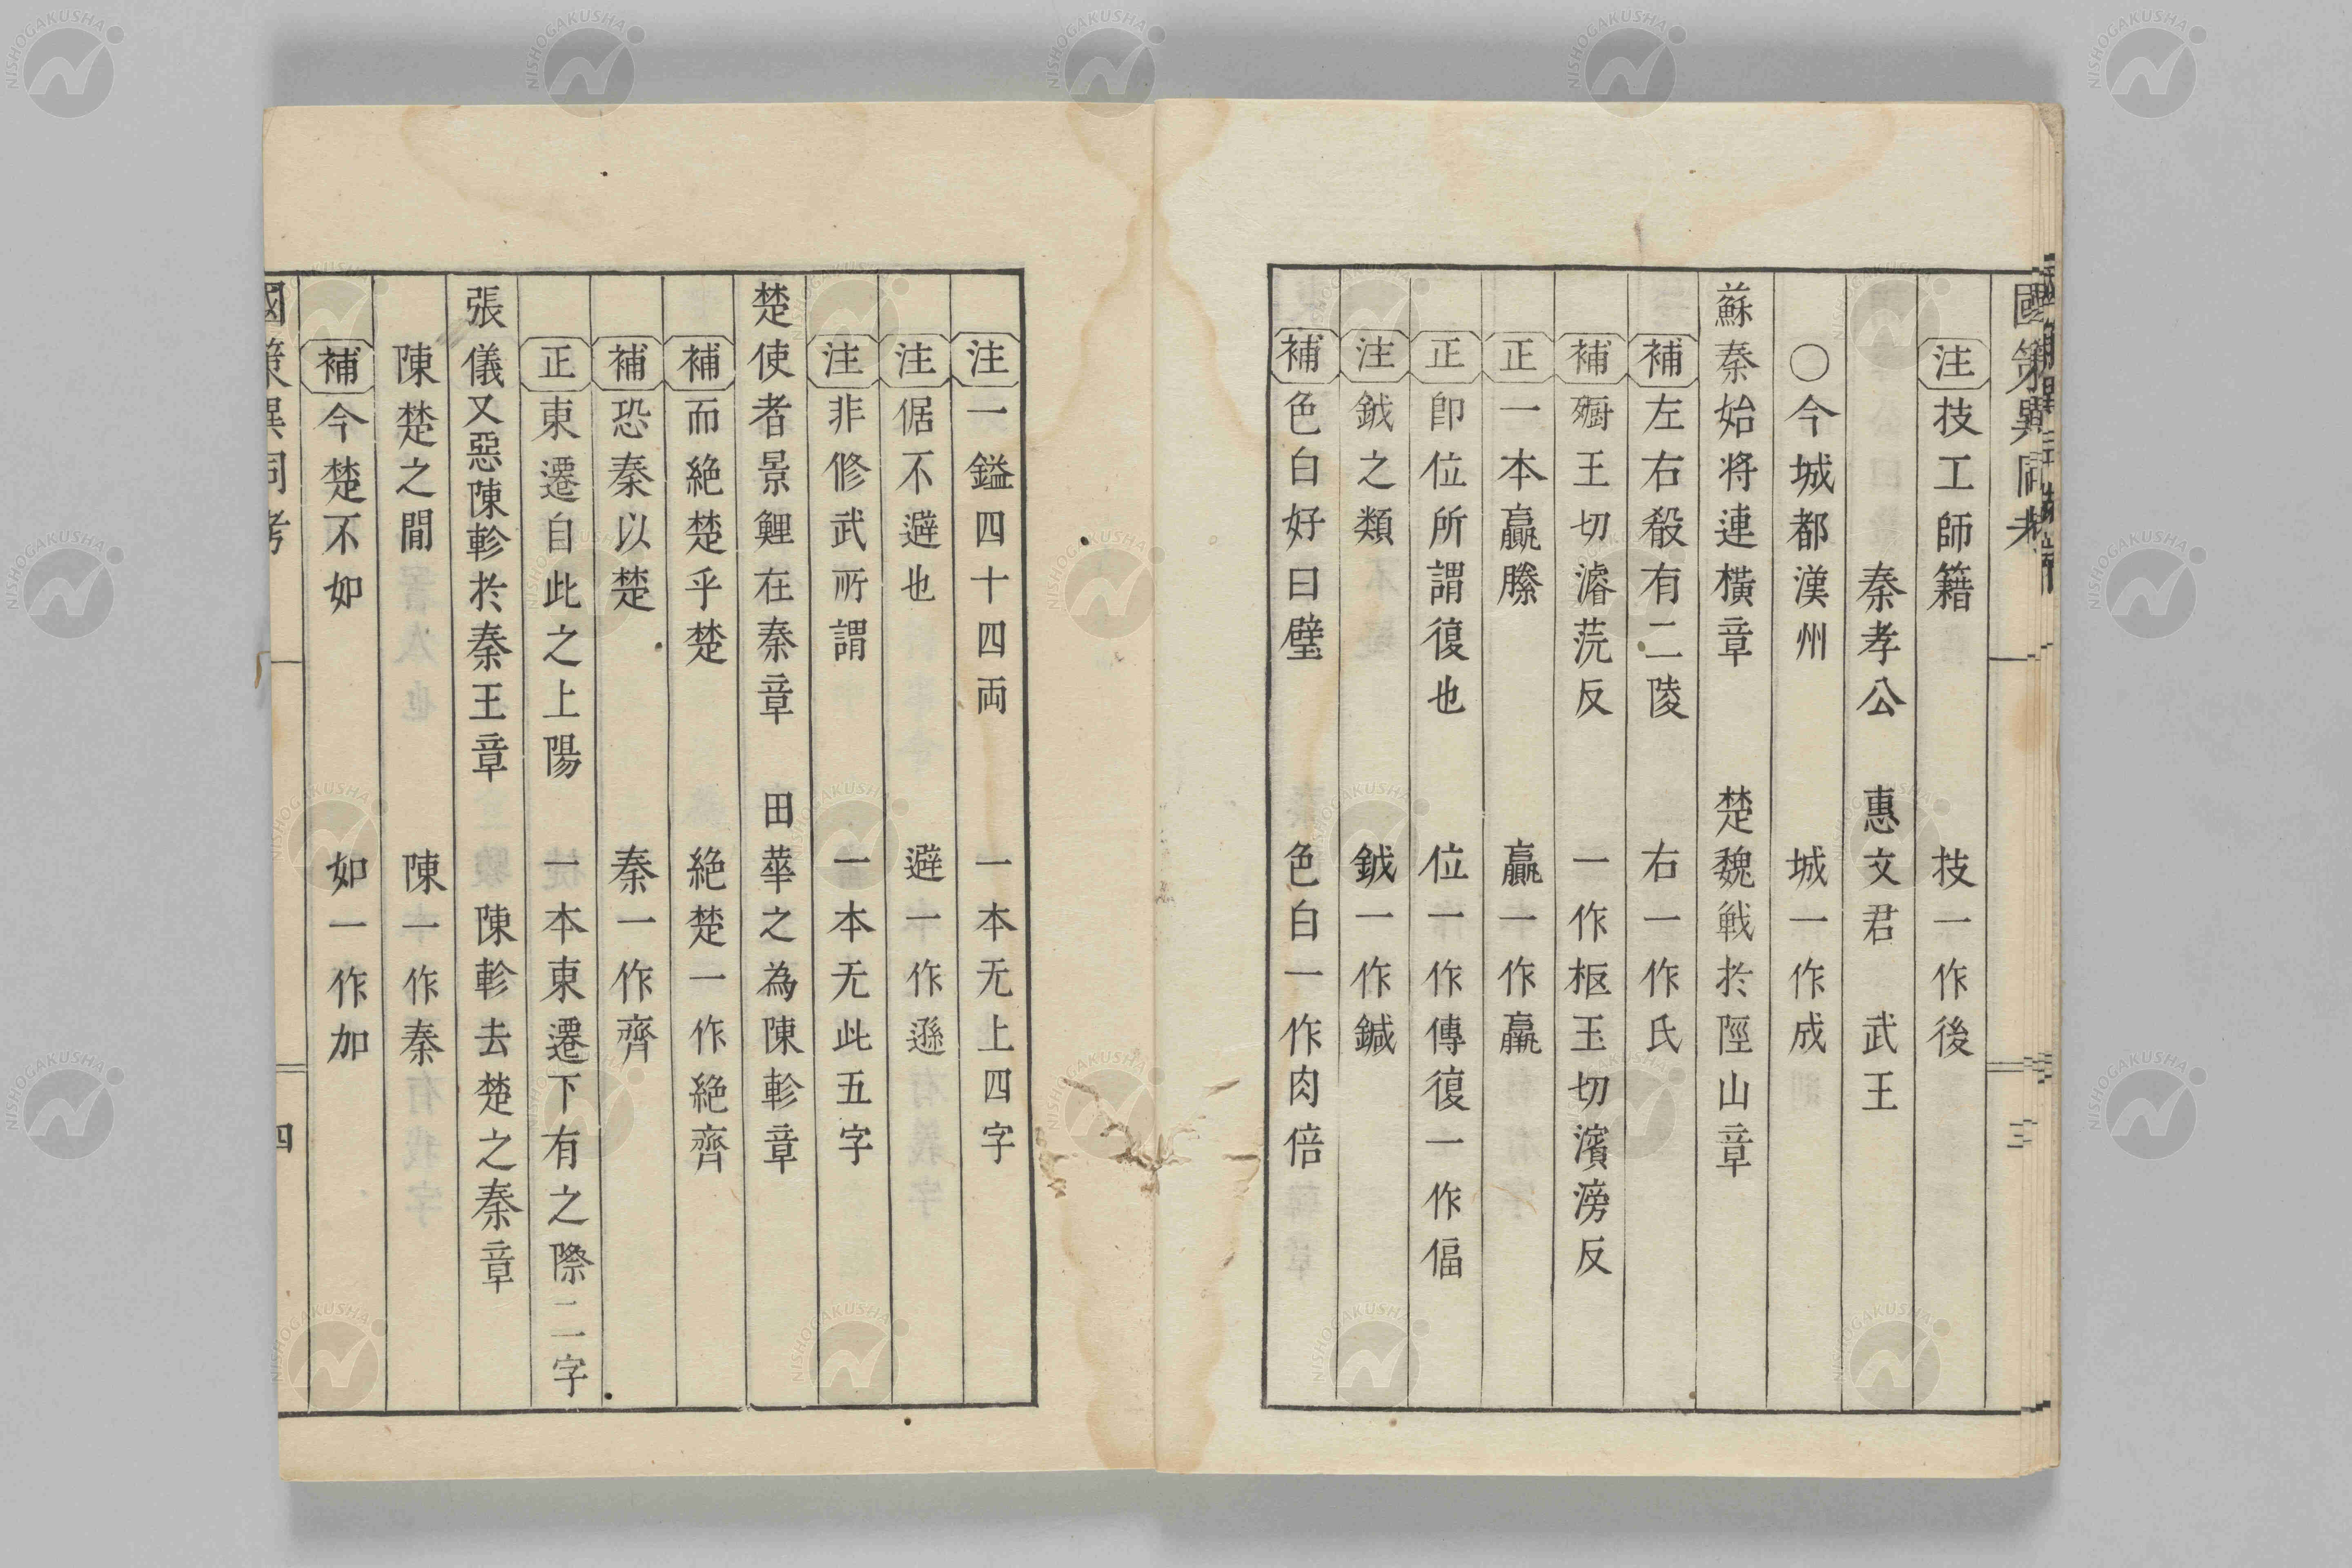 國策異同考 三
注 技工師籍 技一作後
秦孝公 惠文君 武王
○今城都漢州 城一作成
蘇秦始将連橫章 楚魏戦於陘山章
補 左右殽有二陵 右一作氏
補 王切濬茫反 一作枢玉切濱滂反
正 一本贏縢 贏一作羸
正 卽位所謂復也 位一作傳復一作偪
注 鉞之類 鉞一作鍼
補 色白好曰璧 色白一作肉倍
注 一鎰四十四両 一本无上四字
注 倨不避也 避一作遜
注 非修武所謂 一本无此五字
楚使者景鯉在秦章 田華之為陳軫章
補 而絶楚乎楚 絶楚一作絶齊
補 恐秦以楚 秦一作齊
正 東遷自此之上陽 一本東遷下有之際二字
張儀又惡陳軫於秦王章 陳軫去楚之秦章
陳楚之間 陳一作秦
補 今楚不如 如一作加
國策異同考 四